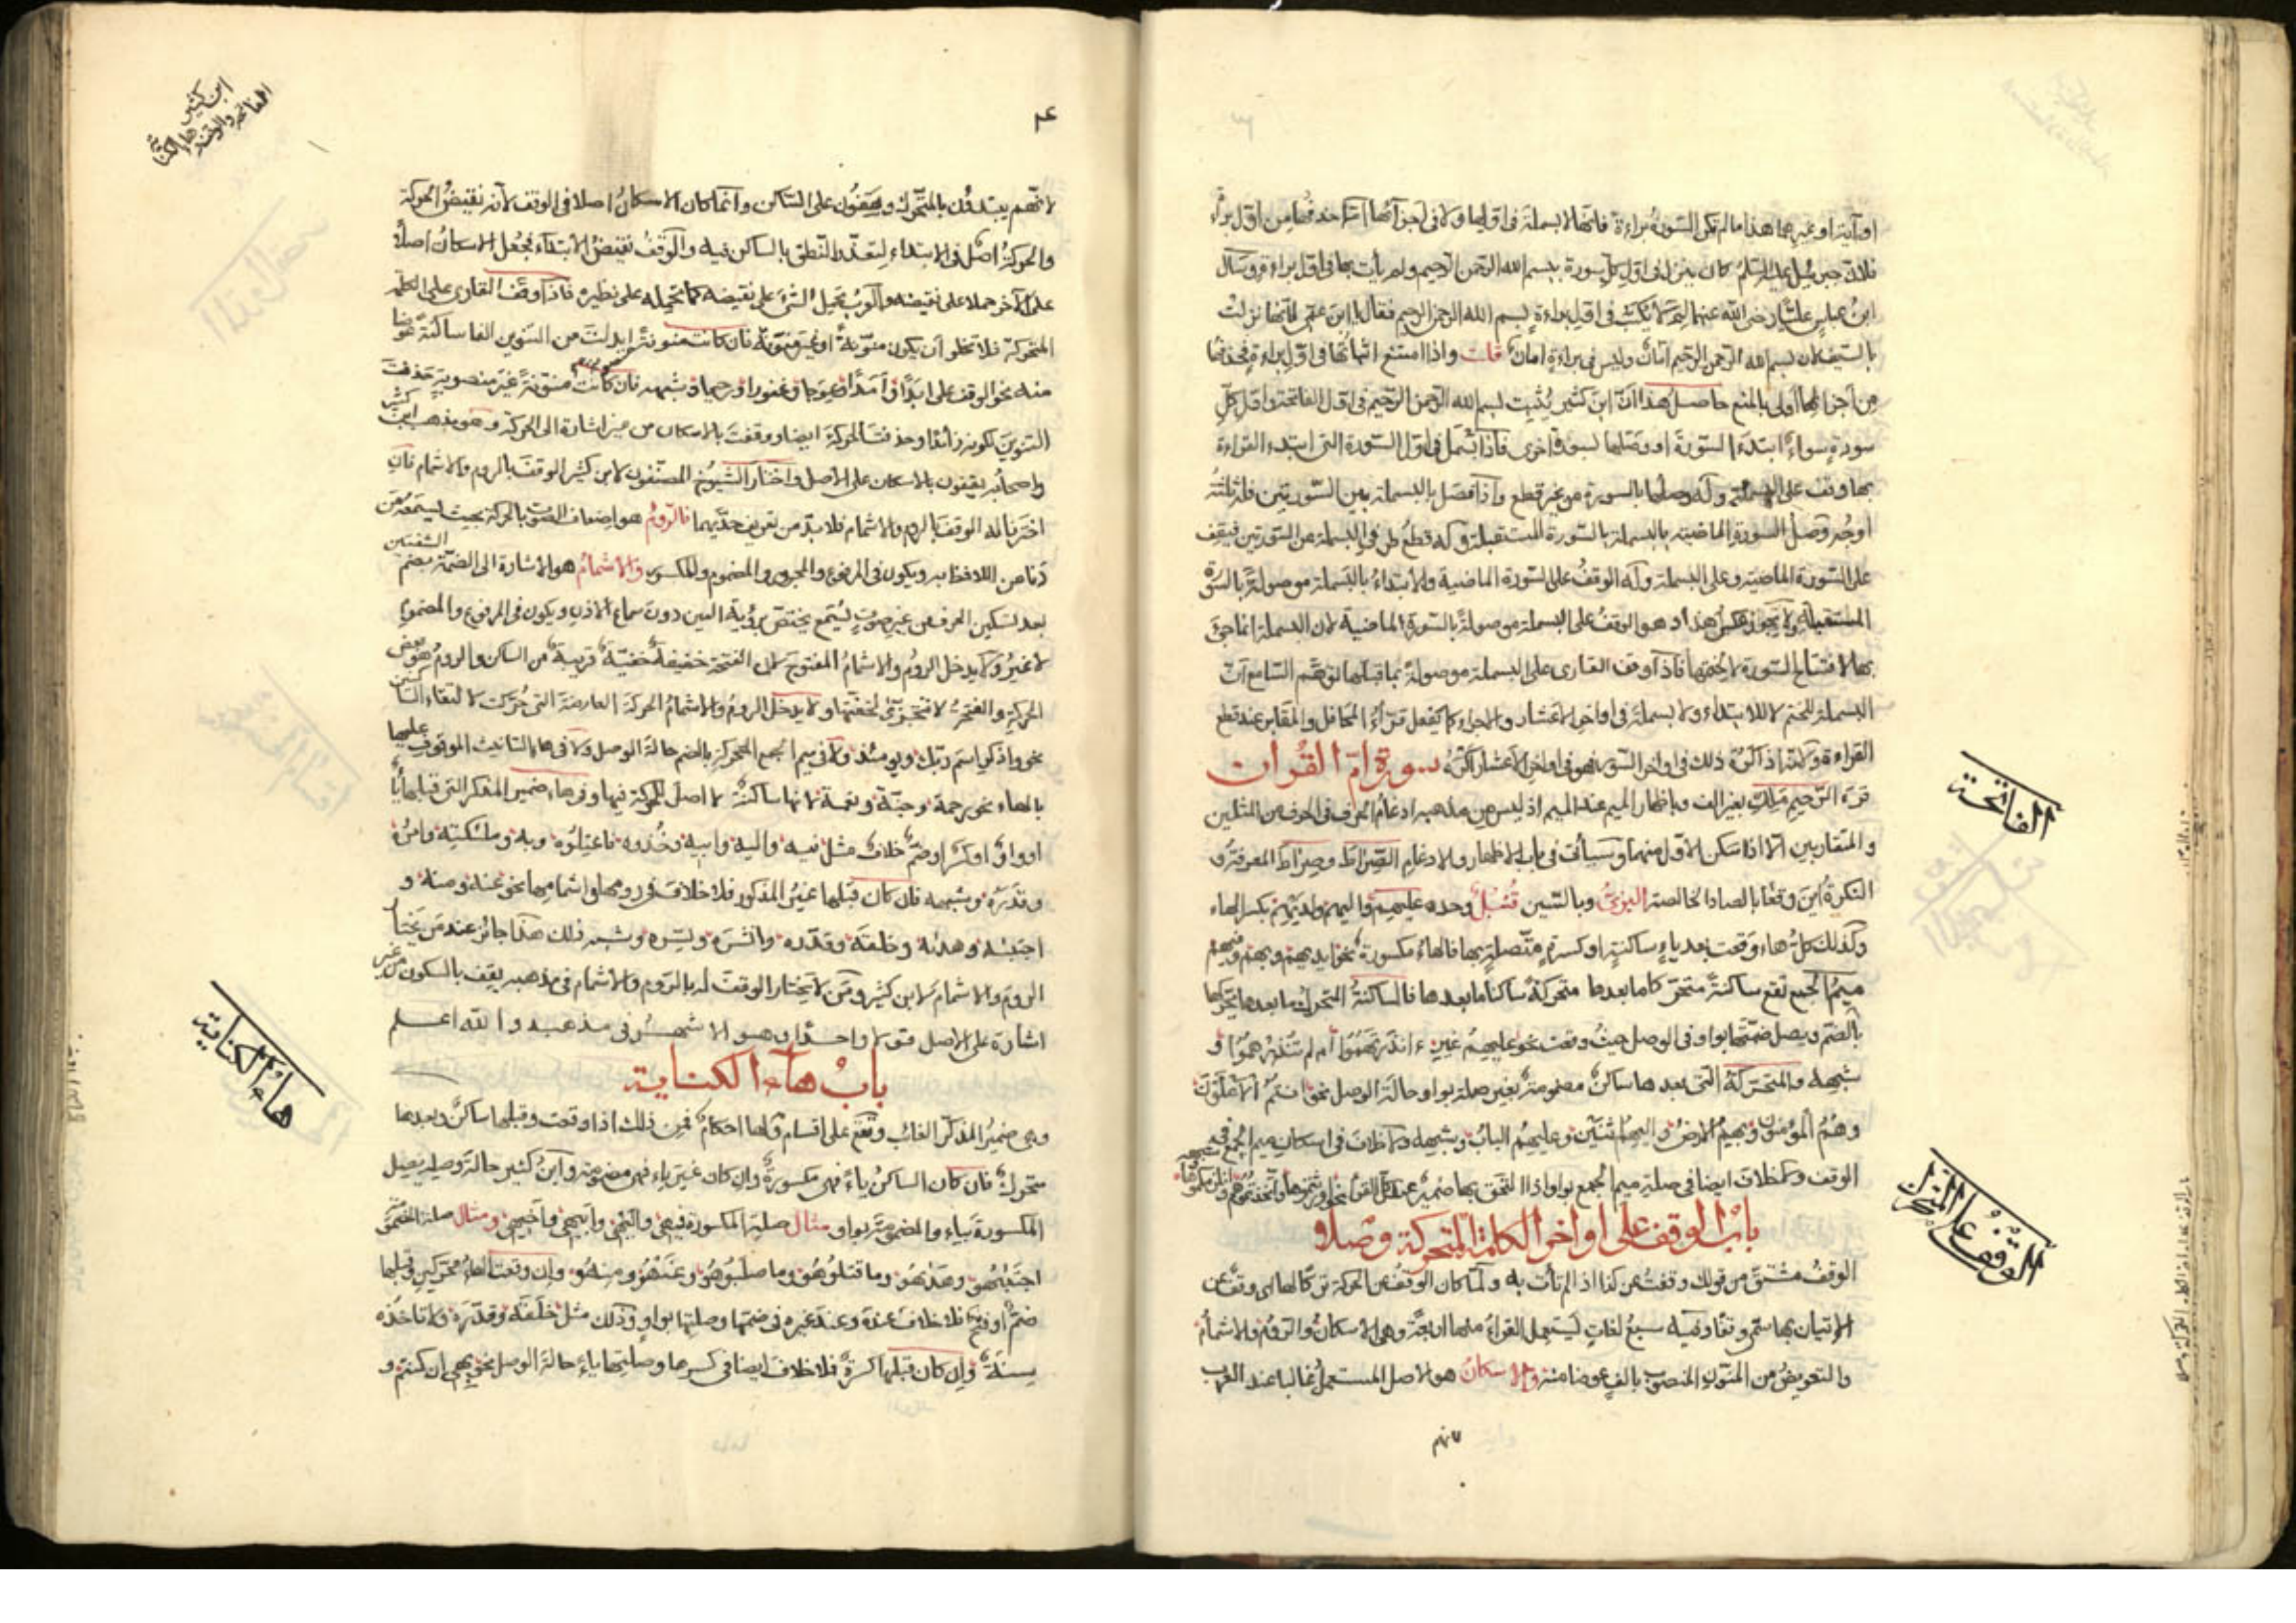 او آية او غيرهما هذا ما لم تكن السورة براءة فانه لا بسملة فى اولها ولا فى اجزآئها امّا حذفها من اول براءة
فلانّ جبرئيل عليه السلم كان ينزل فى اول كل سورة ببسم الله الرحمن الرحيم ولم يأت بها فى اول براءة وسال
ابن عباس عليّا رضى الله عنهما لِمَ لا تكتب فى اول براءة بسم الله الرحمن الرحيم فقال يا ابن عمّى لانّها نزلت
بالسيف لان بسم الله الرحمن الرحيم امانٌ وليس فى براءة امانٌ قلت واذا امتنع اثباتها فى اول براءة فحذفها
من اجزائها اَولى بالمنع حاصل هذا انّ ابن كثير يُثبِت بسم الله الرحمن الرحيم فى اول الفاتحة واول كلّ
سورة سواءٌ ابتدء السورة او وصلها بسورة اخرى فاذا بسمل فى اول السورة التى ابتدء القراءة
بها وقف على البسملة وله وصلها بالسورة من غير قطع واذا فصل بالبسملة بين السورتين فله ثلثة
اوجه وصل السورة الماضية بالبسملة بالسورة المستقبلة وله قطع طرفى البسملة من السورتين فيقف
على السورة الماضية وعلى البسملة وله الوقف على السورة الماضية والابتداءُ بالبسملة موصولةً بالسورة
المستقبلة ولا يجوز عكس هذا وهو الوقف على البسملة موصولةً بالسورة الماضية لان البسملة انما جئ
بها لافتتاح السورة لا لختمها فاذا وقف القارى على البسملة موصولةً بما قبلها لتوهّم السامع انّ
البسملة للختم لا للابتداء ولا بسملة فى اواخر الاعشار والاجزاء كما يفعل قرّاءُ المحافل والمقابر عند قطع
القراءة ولانّه اذا كُرِهَ ذلك فى اواخر السور فهو فى اواخر الاعشار اكرَهُ سورة امّ القُرآن
قرء الرّحيمِ مَلِكِ بغير الف وباظهار الميم عند الميم اذ ليس من مذهبه ادغامُ الحرف فى الحرف من المثلين
والمتقاربين الّا اذا سكن الاوّل منهما وسيأتى فى باب الاظهار والادغام الصِّرَاطَ وصِرَاطَ المعرفة و
النكرة اين وقعا بالصاد الخالصة البزىّ وبالسين قُنبُل وحده عليهِم واليهم ولديهِم بكسر الهاء
وكذلك كلّ هاء وقعت بعد ياءٍ ساكنةٍ او كسرةٍ متّصلةٍ بها فالهاء مكسورة نحو ايديهم وبهم وفيهم
ميم الجمع تقع ساكنةً متحركا ما بعدها متحركةً ساكنا ما بعدها فالساكنةُ المتحرك ما بعدها يحركها
بالضمّ ويصل ضمّتها بواو فى الوصل حيثُ وقعت نحو عليهِمُ غَيرِ ءَاَنذرتَهُمُوا اَم لم تُنذِرهُمُوا و
شبهه والمتحرّكة التى بعدها ساكن مضمومة بغير صلة بواو حالة الوصل نحو انتمُ الاعلَونَ
وهُمُ المؤمنون وبهِمُ الارضَ واليهِمُ اثنَين وعليهِمُ البابَ وشبهه ولا خلاف فى اسكان ميم الجمع فى
الوقف ولا خلاف ايضا فى صلة ميم الجمع بواو اذا التحق بها ضمير
بابُ الوقف على اواخر الكلمة المتحركة وصلاً
الوقف مشتقّ من قولك وقفتُ عن كذا اذا لم تأت به ولمّا كان الوقفُ عن الحركة تركًا لها اى وقف عن
الاتيان بها سمّى وقفًا وفيه سبعُ لغاتٍ يستعمل القراءُ منها اربعةً وهى الاسكانُ والرّومُ والاشمامُ
والتعويضُ من المنوّن المنصوب بالفٍ عوضا منه والاسكانُ هو الاصل المستعمل غالبا عند العرب
لانهم
الفاتحة
الوقف على المتحرك
٤
لانّهم يبتدؤن بالمتحرك ويقفون على الساكن وانّما كان الاسكانُ اصلا فى الوقف لانّه نقيضُ الحركة
والحركةُ اصلٌ فى الابتداء لتعذّر النّطق بالساكن فيه والوقفُ نقيضُ الابتداء فجُعل الاسكانُ اصلًا
على الآخر حملا على نقيضه والعرب تحمِل الشئَ على نقيضه كما تحمله على نظيره فاذا وقف القارى على الكلمة
المتحركة فلا تخلو ان يكون منوّنةً او غيرَ منوّنة فان كانت منونةً ابدلتَ من التنوين الفا ساكنةً عوضا
منه نحو الوقف على ابَدًا واَمَدًا وعِوَجا وغفورا ورحيما وشبهه فان كانت منوّنةً غيرَ منصوبةٍ حذفت
التنوينَ لكونه زائدًا وحذفت الحركة ايضا ووقفتَ بالاسكان من غير اشارة الى الحركة وهو مذهب ابن كثير
واصحابُه يقفون بالاسكان على الاصل واختار الشيوخ المصنّفون لابن كثير الوقفَ بالروم والاشمام فانِ
اخترنا له الوقفَ بالروم والاشمام فلا بدّ من تعريف حدّيهما فالرّومُ هو اضعاف الصوت بالحركة بحيث يسمعه من
دَنا من اللافظ به ويكون فى المرفوع والمجرور والمضموم والمكسور والاشمامُ هو الاشارة الى الضمّة بضم الشفتين
بعد تسكين الحرف من غير صوتٍ يُسمع يختصّ برؤية العين دون سماع الاذن ويكون فى المرفوع والمضموم
لا غيرُ ولا يدخل الرومُ والاشمامُ المفتوح لان الفتحة خفيفة خفيّة قريبة من الساكن والرومُ هو بعض
الحركة والفتحةُ لا تتجزّئ لخفّتها ولا يدخل الرومُ والاشمامُ الحركة العارضة التى حُرّكت لالتقاء الساكنين
نحو واذكر اسمَ ربّك ويومئذٍ ولا فى ميم الجمع المتحركة بالضم حالة الوصل ولا فى هاء التانيث الموقوف عليها
بالهاء نحو رحمة وجنّة ونعمة لانها ساكنةٌ لا اصلَ للحركة فيها وفى هاء ضمير المذكر التى قبلها ياءٌ
او واو او كسرٌ او ضمّ خلافٌ مثل فيه واليه وابيه وخُذُوه فاعتِلُوه وبه وملئكتِه وامرُه
وقَدَرُه وشبهه فان كان قبلها غيرُ المذكور فلا خلافَ فى رومها واشمامها نحو عنه ومنه و
اجتبٰه وهدٰه وخلقَه وقدّره وانشَرَه ويسّره وشبه ذلك هذا جائز عند مَن يختار
الرومَ والاشمامَ لابن كثير ومَن لا يختار الوقف له بالروم والاشمام فى مذهبه يقف بالسكون من غير
اشارة على الاصل قولا واحدًا وهو الاشهر فى مذهبه والله اعلم
بابُ هآء الكناية
وهى ضميرُ المذكّر الغائب وتقع على اقسام ولها احكامٌ فمن ذلك اذا وقعت وقبلها ساكنٌ وبعدها
متحركٌ فان كان الساكنُ ياءً فهى مكسورةٌ وان كان غيرَ ياء فهى مضمومة وابنُ كثير حالةَ وصله يصل
المكسورة بياء والمضمومة بواو مثال صلة المكسورة فيهى واليهى وابيهى واخيهى ومثال صلة المضمومة
اجتبٰهُو وهدٰهُو وما قتلوهُو وما صلَبُوهُو وعنهُو ومنهُو وان وقعت الهاءُ بين متحركين وقبلها
ضمّ او فتح فلا خلافَ عنه وعند غيره فى ضمّها وصلتها بواو وذلك مثل خلقَه وقدّرَه ولا تاخُذُه
سِنَةٌ وان كان قبلها كسرةٌ فلا خلافَ ايضا فى كسرها وصلتها بياء حالة الوصل نحو بِهى ان كنتم و
هاء الكناية
ابن كثير